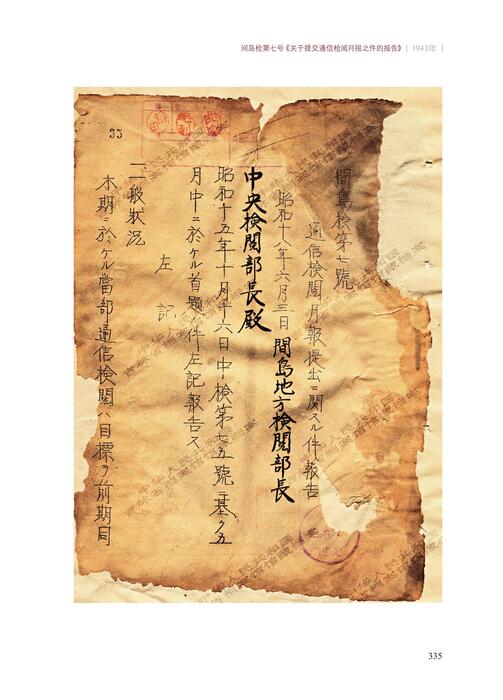 间岛检第七号《关于提交通信检阅月报之件的报告》 | 1943年 |
35
間島檢第七號
通信検閲月報提出ニ関スル件報告
昭和十八年六月三日 間島地方検閲部長
中央検閲部長殿
昭和十五年十月十六日中検第七五號ニ基ク五
月中ニ於ケル首題ノ件左記報告ス
左記
一、一般狀況
本期ニ於ケル當部通信検閲ハ目標ヲ前期同
中华人民共和国
吉林省档案馆馆藏
335